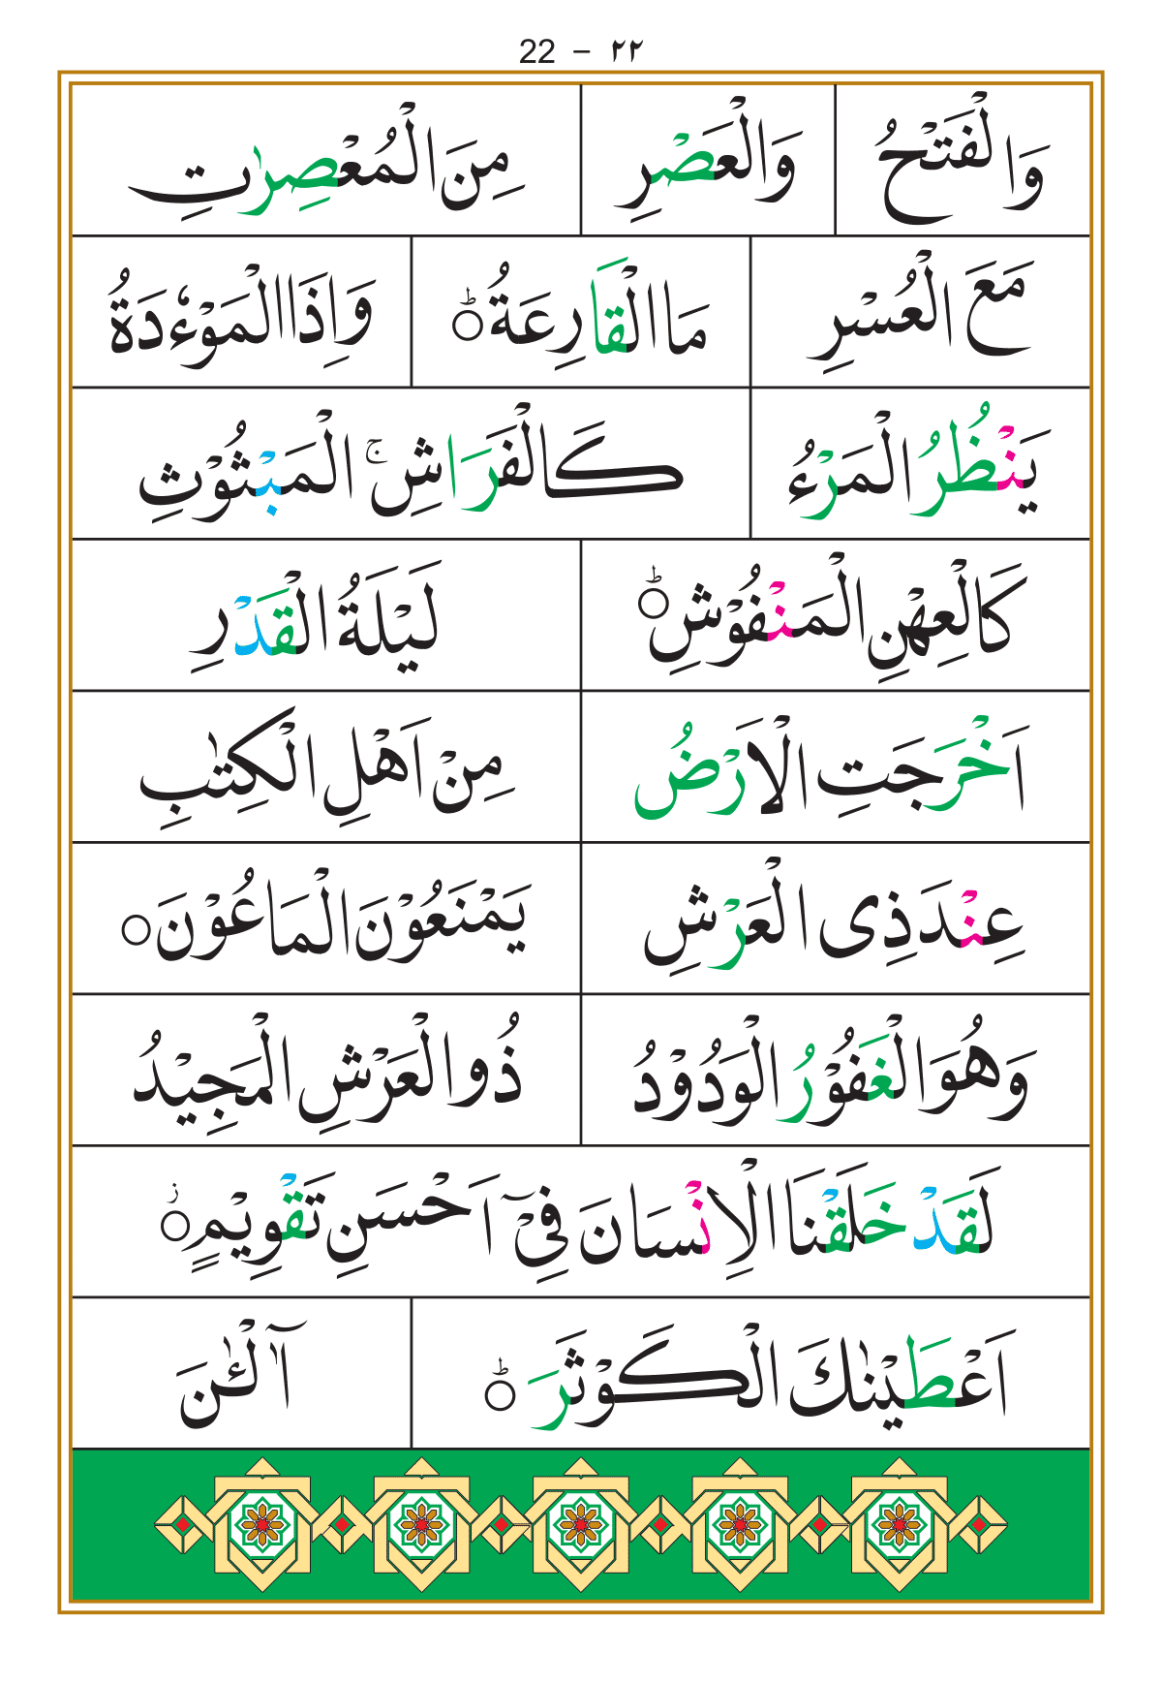 22 - ٢٢
وَالْفَتْحُ وَالْعَصْرِ مِنَ الْمُعْصِرٰتِ
مَعَ الْعُسْرِ مَا الْقَارِعَةُ ؕ○ وَاِذَا الْمَوْءٗدَةُ
يَنْظُرُ الْمَرْءُ كَالْفَرَاشِ الْمَبْثُوْثِ ۚ
كَالْعِهْنِ الْمَنْفُوْشِ ؕ○ لَيْلَةُ الْقَدْرِ
اَخْرَجَتِ الْاَرْضُ مِنْ اَهْلِ الْكِتٰبِ
عِنْدَ ذِى الْعَرْشِ يَمْنَعُوْنَ الْمَاعُوْنَ ○
وَهُوَ الْغَفُوْرُ الْوَدُوْدُ ذُو الْعَرْشِ الْمَجِيْدُ
لَقَدْ خَلَقْنَا الْاِنْسَانَ فِىْۤ اَحْسَنِ تَقْوِيْمٍ ؗ○
اَعْطَيْنٰكَ الْكَوْثَرَ ؕ○ آٰلْـٰٔنَ